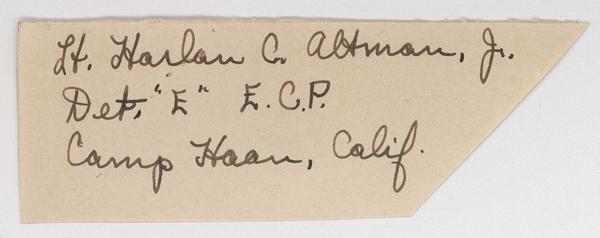 Lt. Harlan C. Altman, Jr.
Det. "E" E.C.P.
Camp Haan, Calif.